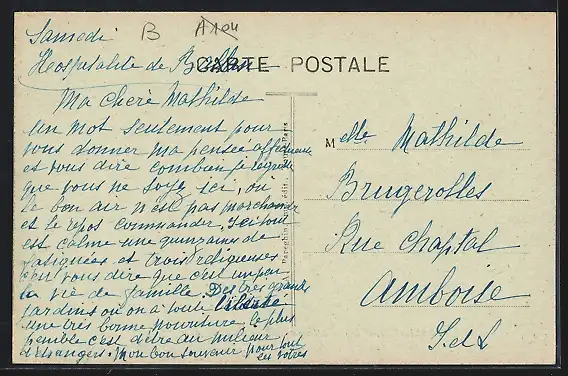 Samedi
B
Hospitalité de
CARTE POSTALE
Ma Chere Mathilde
un mot seulement pour
vous donner ma pensée affectueuse
et vous dire combien je regrette
que vous ne soyez ici, où
le bon air n'est pas marchandé
et le repos commander. Ici tout
est calme une quinzaine de
fatiguées et trois religieuses
c'est vous dire que c'est un peu
la vie de famille. Des très grands
jardins où on a toute liberté
une très bonne nourriture, le plus
penible c'est d'être au milieu
d'etrangers. Mon bon souvenir pour tout
et vôtres
Melle Mathilde
Brugerolles
Rue Chaptal
Amboise
I. d L